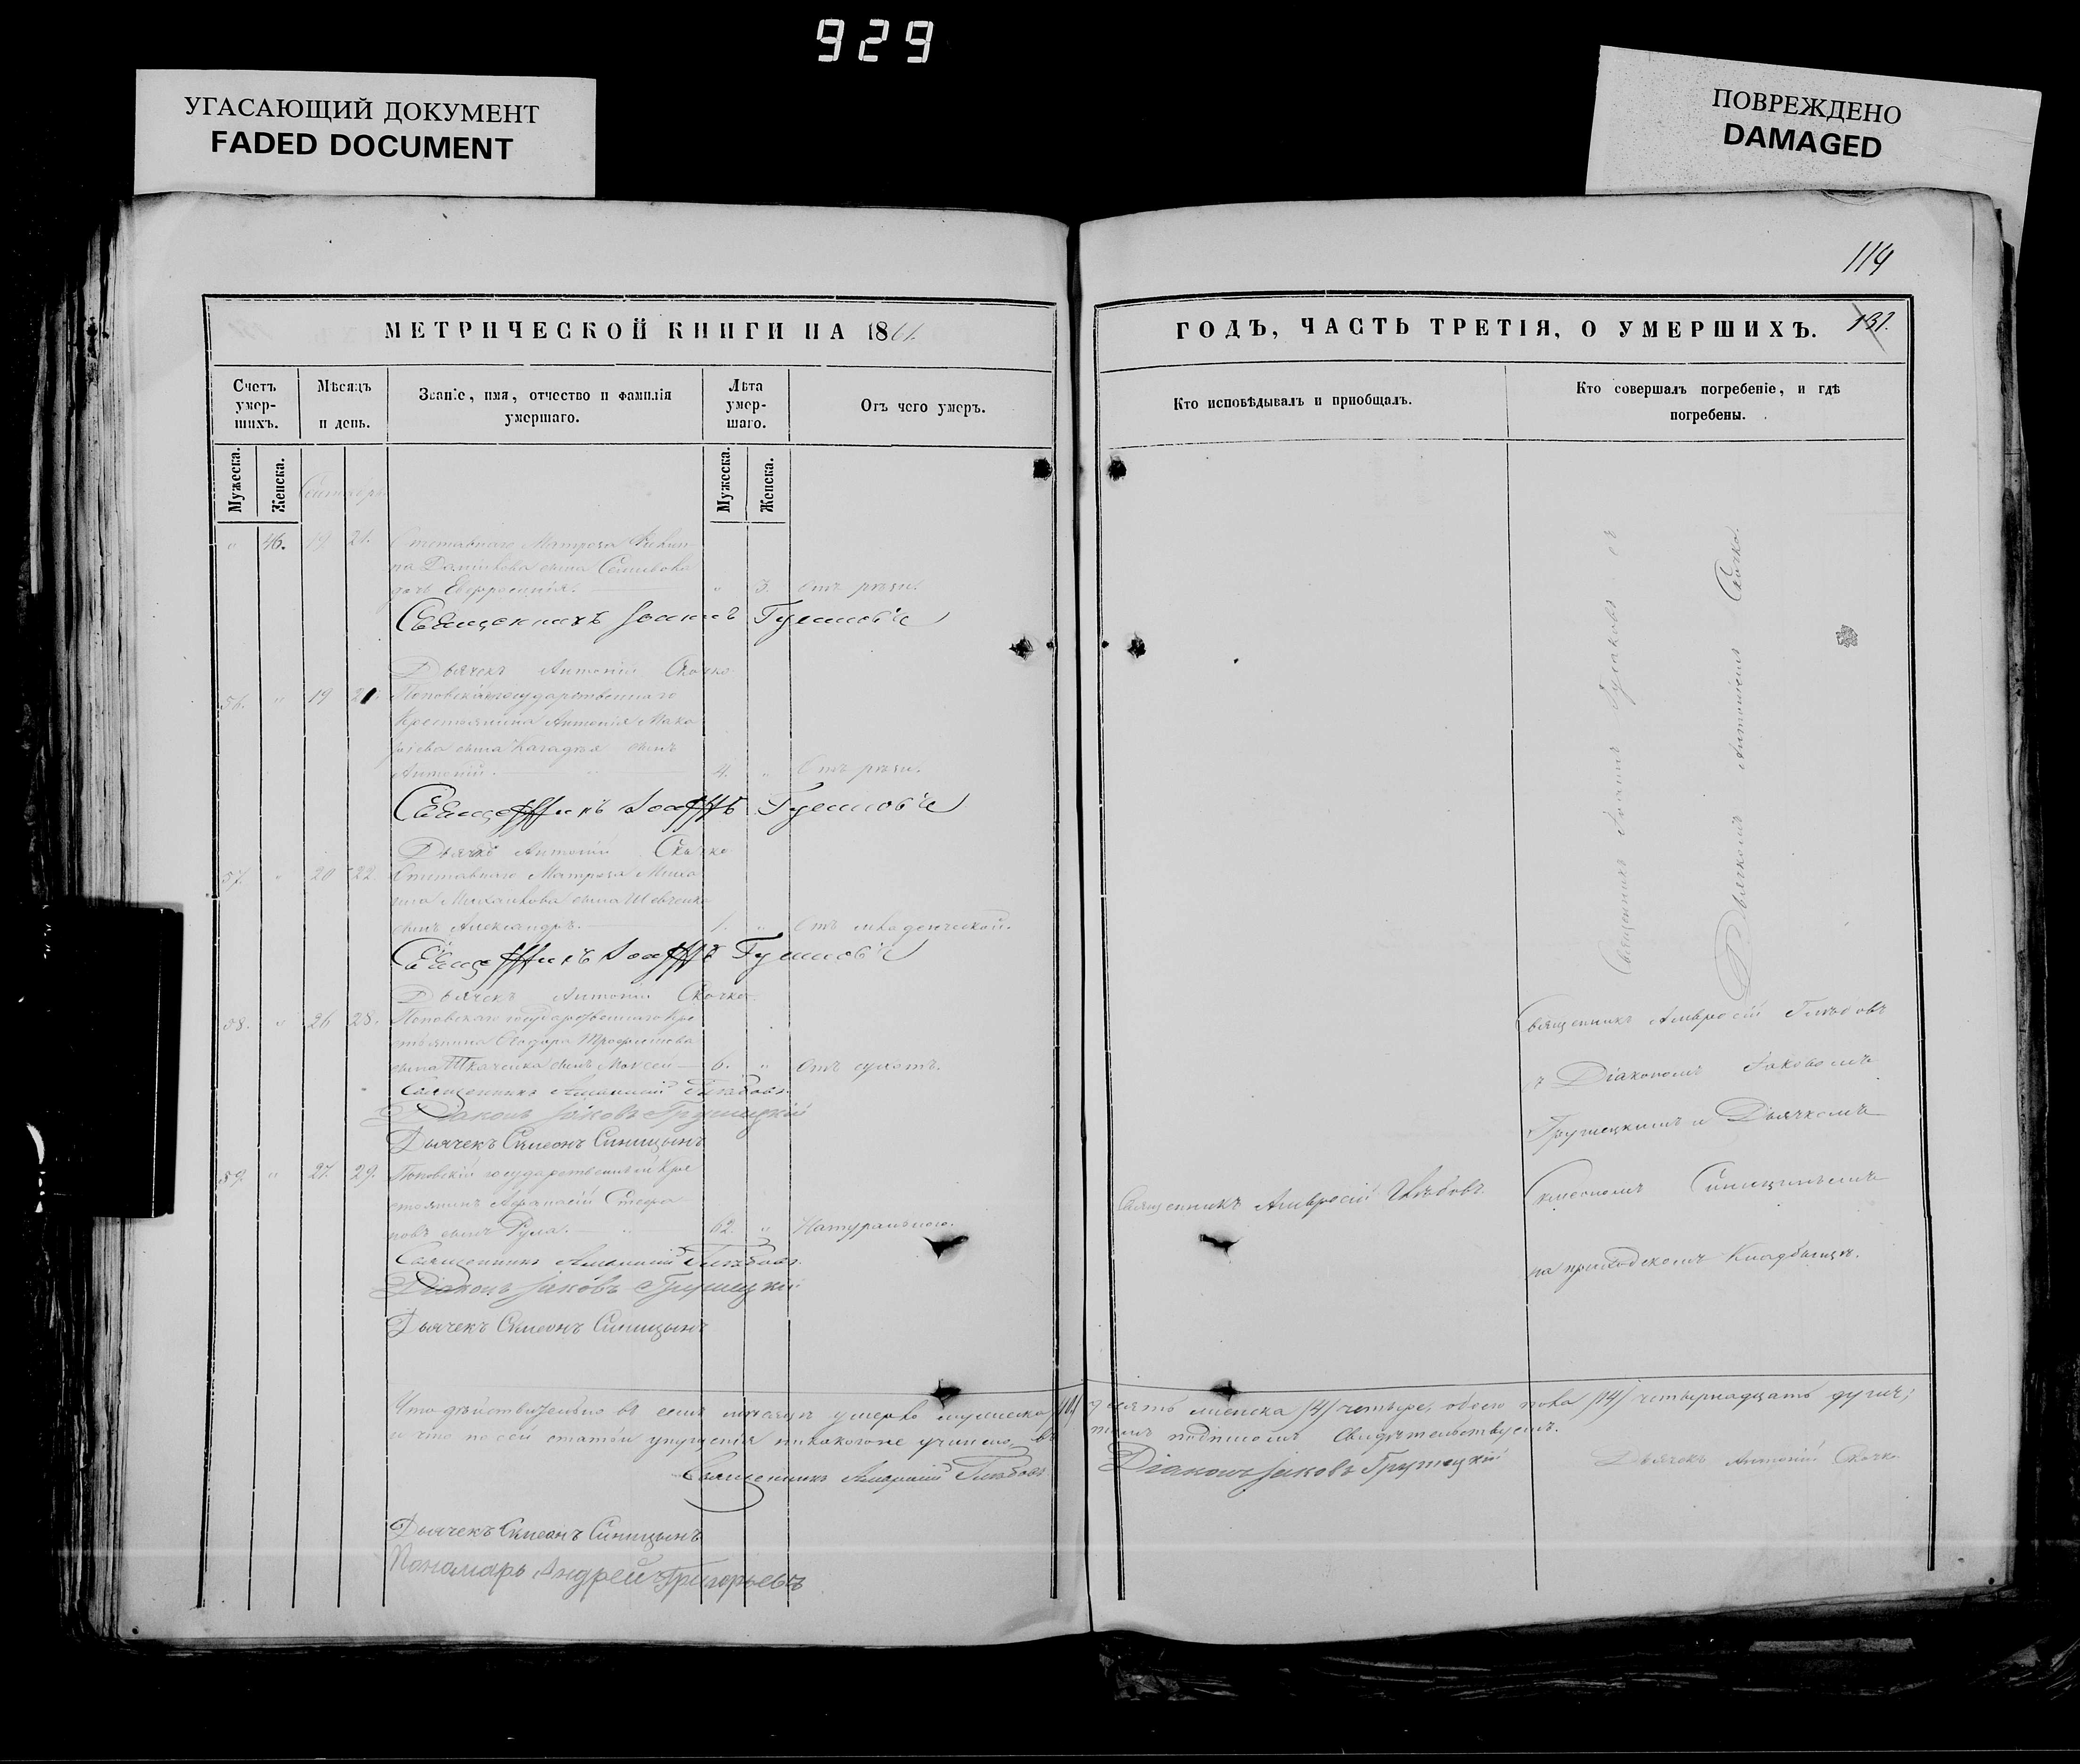 929
УГАСАЮЩИЙ ДОКУМЕНТ
FADED DOCUMENT
ПОВРЕЖДЕНО
DAMAGED
114
МЕТРИЧЕСКОЙ КНИГИ НА 1861.
ГОДЪ, ЧАСТЬ ТРЕТІЯ, О УМЕРШИХЪ.
131.
Счетъ умер-шихъ.
Мѣсяцъ и день.
Званіе, имя, отчество и фамилія умершаго.
Лѣта умер-шаго.
Отъ чего умеръ.
Кто исповѣдывалъ и приобщалъ.
Кто совершалъ погребеніе, и гдѣ погребены.
Мужеска.
Женска.
Мужеска.
Женска.
" 46. 19 21. Отставнаго Матроза
сына
дочь Евфросинія. " 3. Отъ
Священникъ Іоаннъ
Дьячекъ Антоній Скочко
56. " 19 21 Поповскаго государственнаго
Крестьянина Антонія Мака
рьева сына сынъ
Антоній. 4. " Отъ
Священникъ Іоаннъ
Дьячекъ Антоній Скочко
57. " 20 22. Отставнаго Матроза
сына Шевченко
сынъ Александръ. 1. " Отъ младенческой.
Священникъ Іоаннъ
Дьячекъ Антоній Скочко
58. " 26 28. Поповскаго государственнаго Кре
стьянина Ѳедора Трофимова
сына Ткаченка сынъ Моѵсей 6. " Отъ сухотъ.
Священникъ Амвросій Глѣбовъ
Діаконъ Іаковъ Грушецкій
Дьячекъ Сѵмеонъ Синицынъ
59. " 27. 29. Поповскій государственный Кре
стьянинъ Афанасій Стефа
новъ сынъ Рула. 62. " Натуральною.
Священникъ Амвросій Глѣбовъ.
Діаконъ Іаковъ Грушецкій
Дьячекъ Сѵмеонъ Синицынъ
Священникъ Амвросій Глѣбовъ
Священникъ Іоаннъ съ
Дьячкомъ Антоніемъ Скочко.
Священникъ Амвросій Глѣбовъ
съ Діакономъ Іаковомъ
Грушецкимъ и Дьячкомъ
Сѵмеономъ Синицынымъ
на приходскомъ Кладбищѣ.
Что дѣйствительно въ семъ мѣсяцѣ умерло мужеска /10/ десять женска /4/ четыре, обоего пола /14/ четырнадцать душъ;
и что по сей статьи упущенія никакого не учинено, въ томъ подписомъ свидѣтельствуемъ.
Священникъ Амвросій Глѣбовъ
Діаконъ Іаковъ Грушецкій
Дьячекъ Антоній Скочко.
Дьячекъ Сѵмеонъ Синицынъ
Пономарь Андрей Григорьевъ